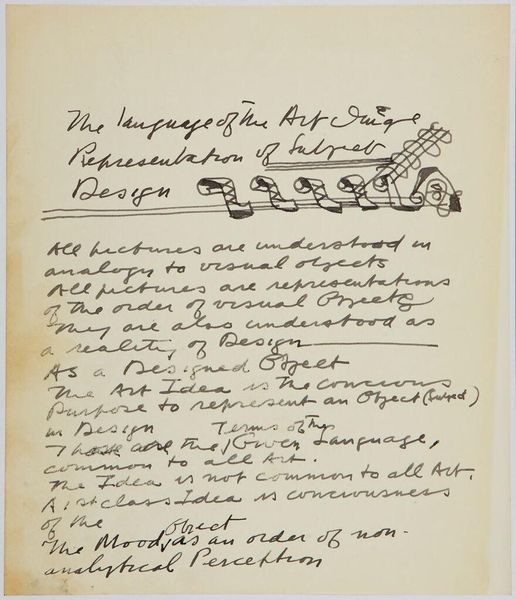 The language of the Art Image
Representation of Subject
Design
All pictures are understood in
analogy to visual objects
All pictures are representations
of the order of visual Objects
They are also understood as
a reality of Design
As a Designed Object
The Art Idea is the concious
Purpose to represent an Object (Subject)
in Design
Terms of the
are the Given Language,
common to all Art.
The Idea is not common to all Art.
A 1st class Idea is conciousness
of the
object
The Mood, as an order of non-
analytical Perception